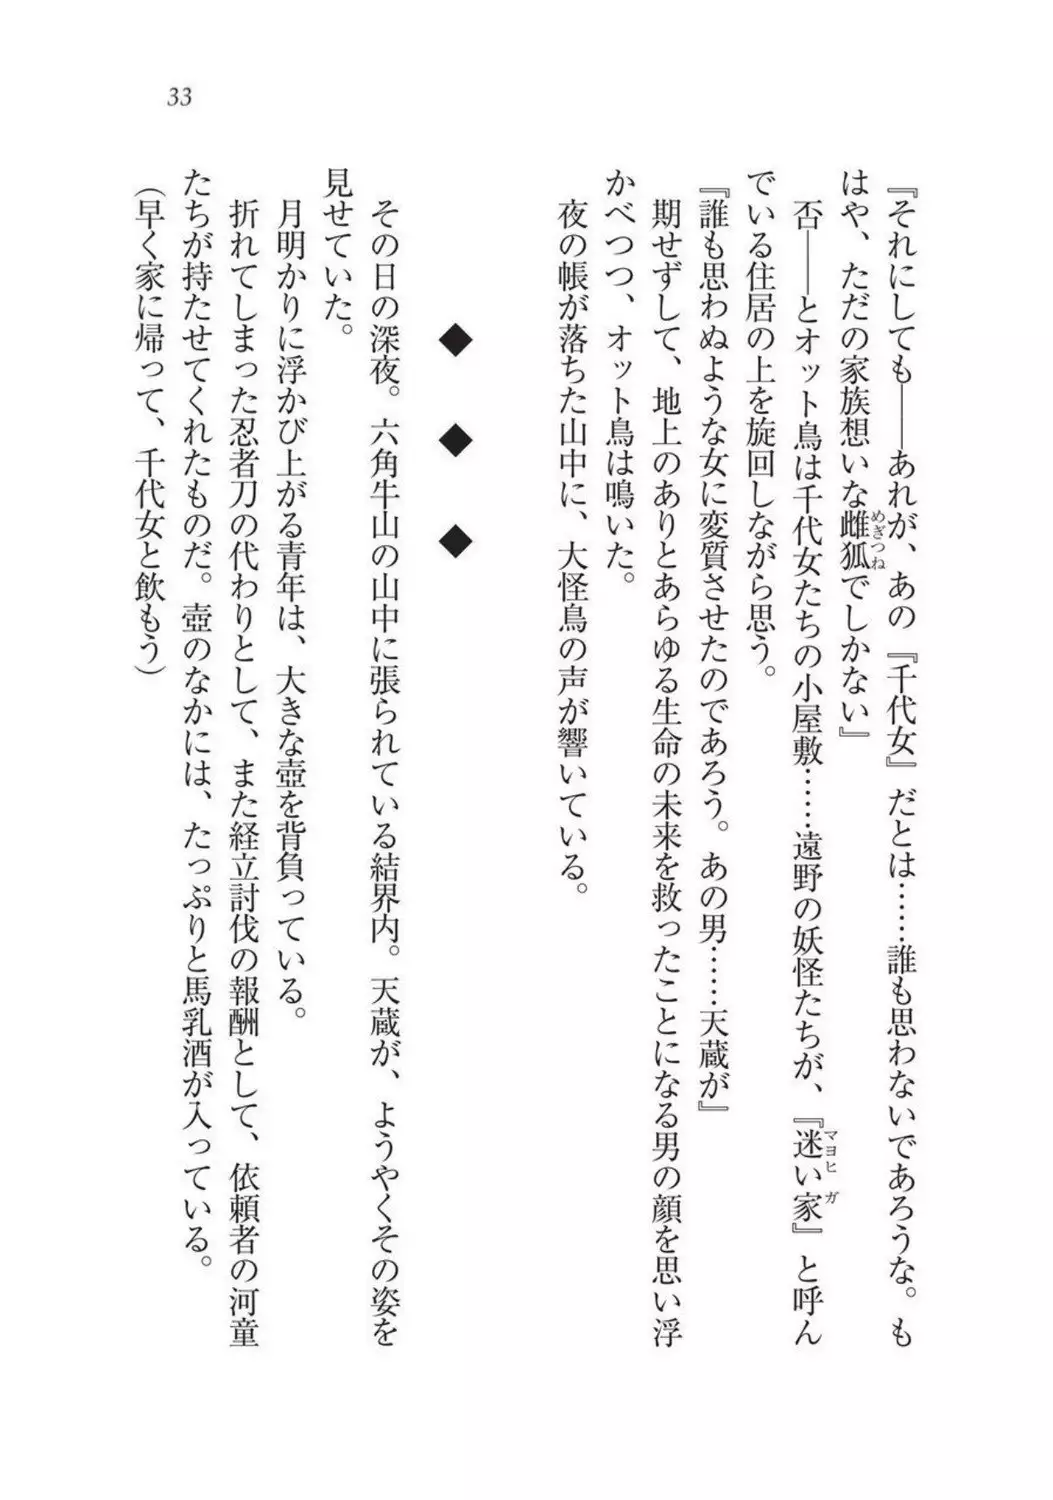 33
『それにしても――あれが、あの『千代女』だとは……誰も思わないであろうな。も
はや、ただの家族想いな雌狐でしかない』
めぎつね
　否――とオット鳥は千代女たちの小屋敷……遠野の妖怪たちが、『迷い家』と呼ん
マヨヒガ
でいる住居の上を旋回しながら思う。
『誰も思わぬような女に変質させたのであろう。あの男……天蔵が』
　期せずして、地上のありとあらゆる生命の未来を救ったことになる男の顔を思い浮
かべつつ、オット鳥は鳴いた。
　夜の帳が落ちた山中に、大怪鳥の声が響いている。
◆　◆　◆
　その日の深夜。六角牛山の山中に張られている結界内。天蔵が、ようやくその姿を
見せていた。
　月明かりに浮かび上がる青年は、大きな壺を背負っている。
　折れてしまった忍者刀の代わりとして、また経立討伐の報酬として、依頼者の河童
たちが持たせてくれたものだ。壺のなかには、たっぷりと馬乳酒が入っている。
（早く家に帰って、千代女と飲もう）